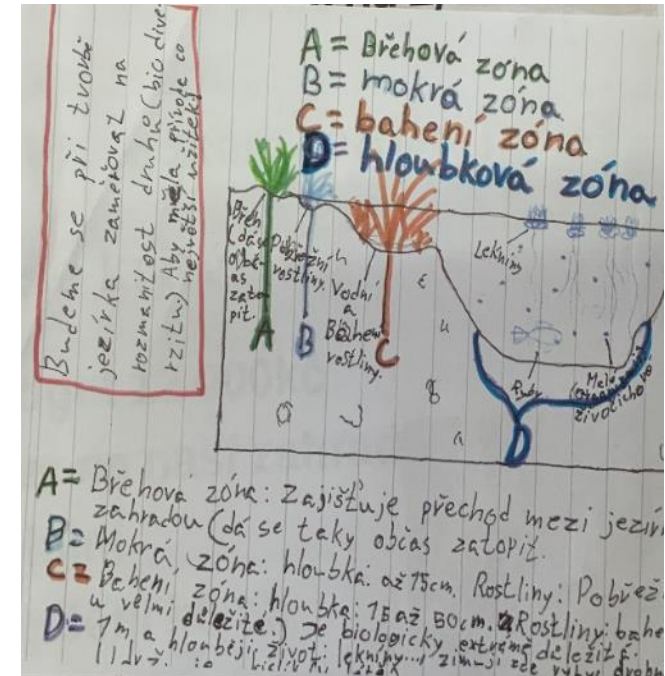 Budeme se při tvorbě
jezírka zaměřovat na
rozmanitost druhů (bio dive-
rzitu) Aby měla příroda co
největší užitek
A = Břehová zóna
B = mokrá zóna
C = bahení zóna
D = hloubková zóna
Břeh
občas
zato
pit.
Pobřežní
rostliny.
Vodní
a
Bahení
rostliny.
Lekníny
Ryby
Malé
živočichové
A
B
C
D
A = Břehová zóna: Zajišťuje přechod mezi jezír
zahradou (dá se taky občas zatopit.
B = Mokrá zóna: hloubka: až 15cm. Rostliny: Pobřež
C = Bahení zóna: hloubka: 15 až 50cm. Rostliny: bahe
u velmi důležité.) Je biologicky extrémě důležitá.
D = 1m a hlouběji, život: lekníny... zimují zde ryby drobn